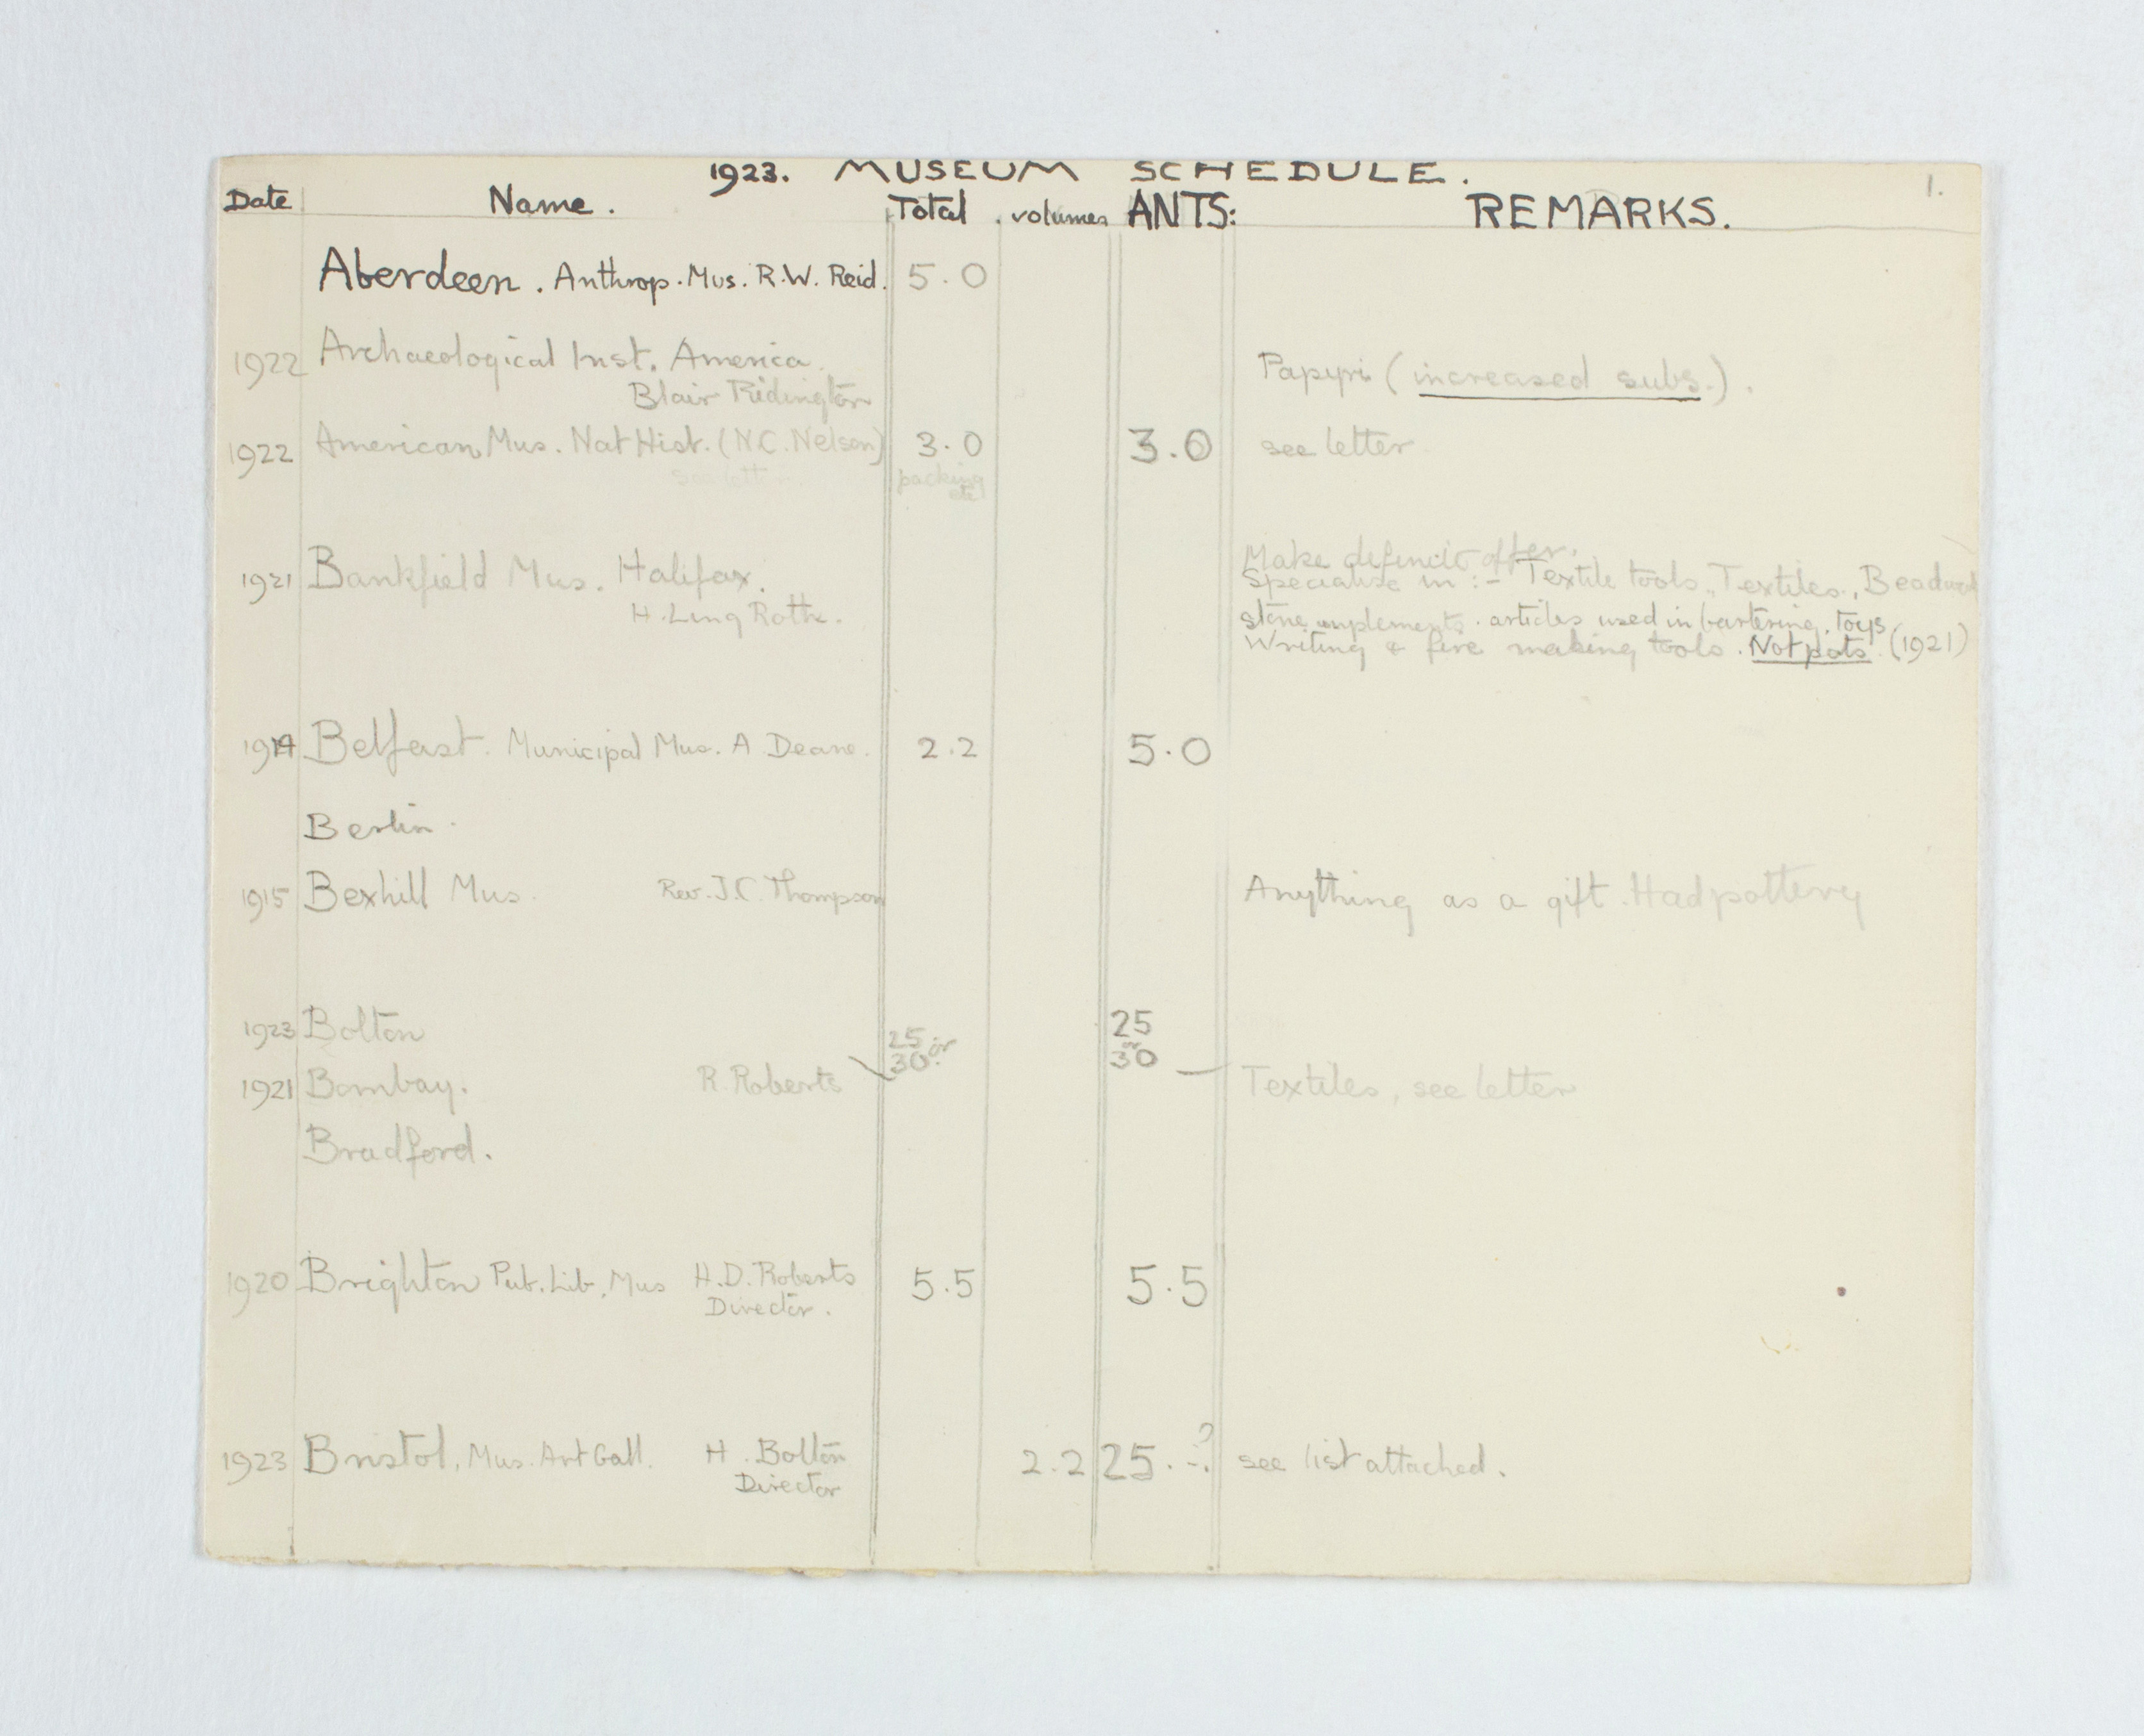 1923. MUSEUM SCHEDULE.
1.
Date Name. Total . volumes ANTS: REMARKS.
Aberdeen. Anthrop. Mus. R.W. Reid. 5.0
1922 Archaeological Inst. America. Papyri (increased subs.).
Blair Ridington
1922 American Mus. Nat Hist. (N.C. Nelson) 3.0 3.0 see letter
see letter. packing
etc
Make definite offer.
1921 Bankfield Mus. Halifax. Specialise in :- Textile tools, Textiles, Beadwork
H. Ling Roth. stone implements. articles used in bartering, toys,
Writing & fire making tools. Not pots. (1921)
1914 Belfast. Municipal Mus. A Deane. 2.2 5.0
Berlin.
1915 Bexhill Mus. Rev. J.C. Thompson Anything as a gift. Had pottery
1923 Bolton 25 or 25 or
1921 Bombay. R. Roberts 30. 30 Textiles, see letter
Bradford.
1920 Brighton Pub. Lib. Mus H.D. Roberts 5.5 5.5
Director.
1923 Bristol, Mus. Art Gall. H. Bolton 2.2 25. -. ? see list attached.
Director